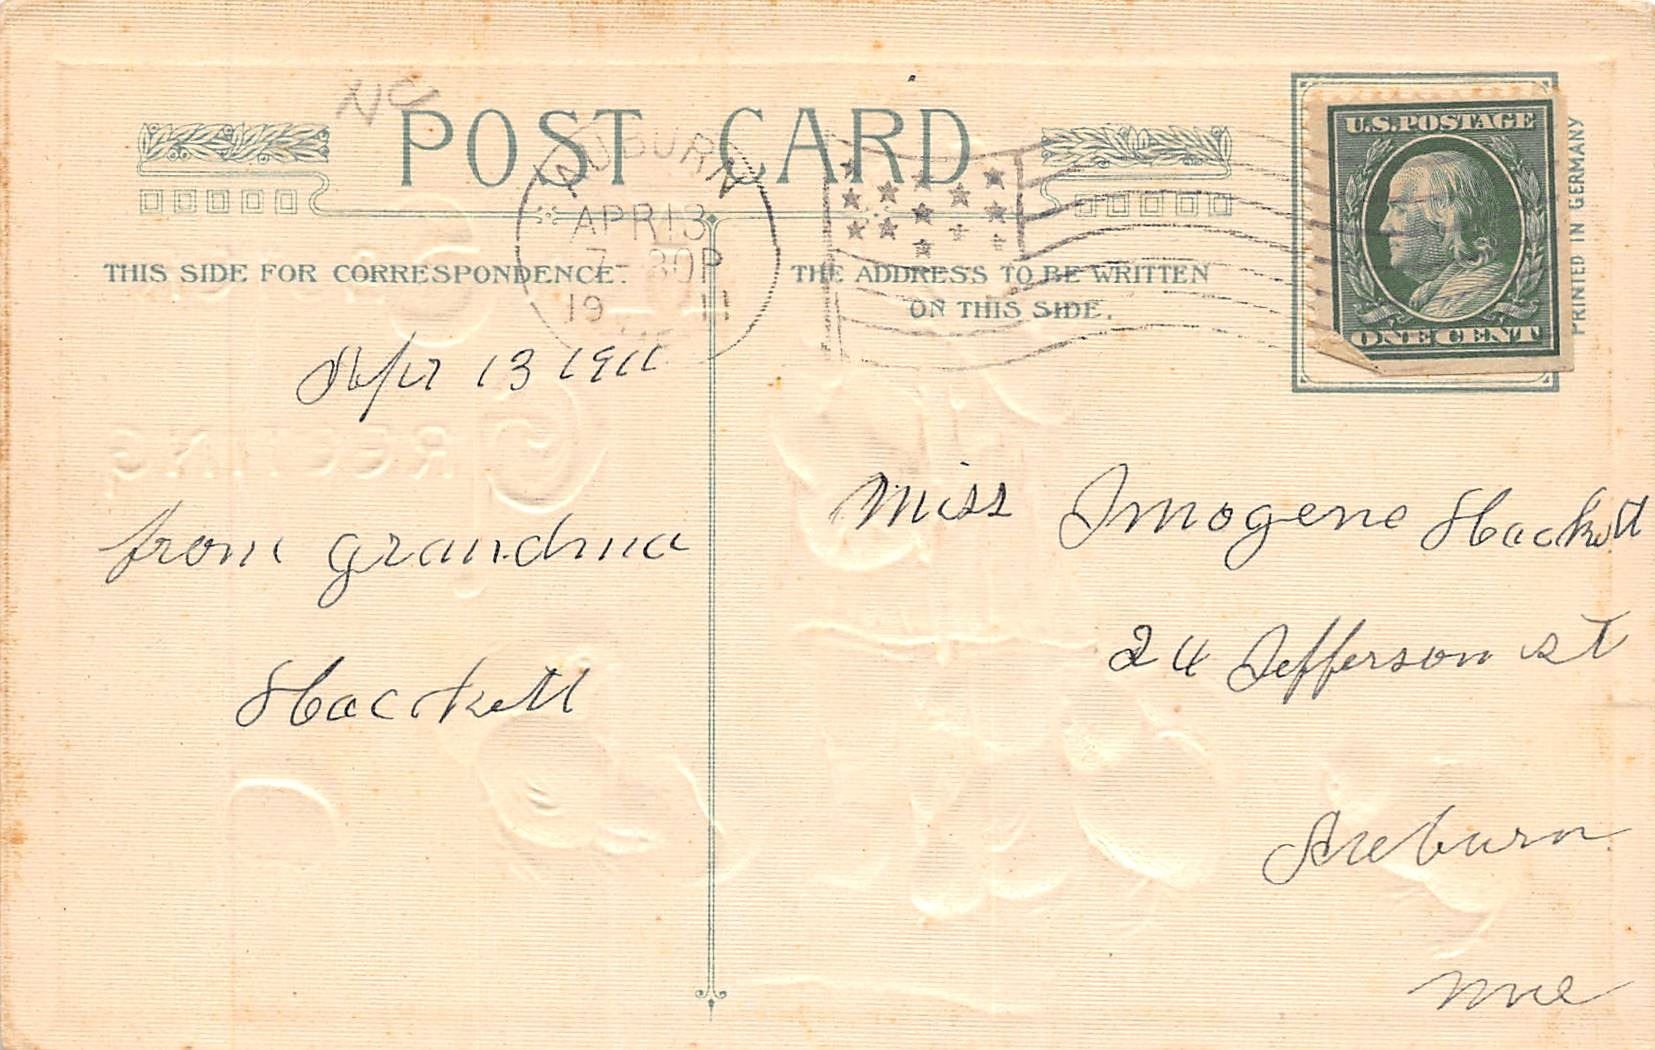 POST CARD
AUBURN
APR 13
7-30P
1911
THIS SIDE FOR CORRESPONDENCE.
THE ADDRESS TO BE WRITTEN
ON THIS SIDE.
U.S. POSTAGE
ONE CENT
PRINTED IN GERMANY
Apr 13 1911
GREETING
from grandma
Hackett
Miss Imogene Hackett
24 Jefferson st
Auburn
Me